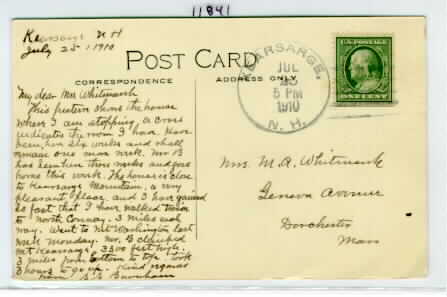 11841
Kearsarge N H
July 25, 1910
POST CARD
CORRESPONDENCE
ADDRESS ONLY
KEARSARGE,
JUL
25
5 PM
1910
N. H.
U.S. POSTAGE
ONE CENT
My dear Mrs Whitmarsh
This picture shows the house
where I am stopping, a cross
indicates the room I have. Have
been here six weeks and shall
remain one more week. Mr B
has been here three weeks and goes
home this week. The house is close
to Kearsarge Mountain, a very
pleasant place, and I have gained
so fast that I have walked twice
to North Conway. 3 miles each
way. Went to Mt Washington last
week Monday. Mr. B climbed
Mt Kearsarge, 3300 feet high.
3 miles from bottom to top took
3 hours to go up. Kind regards
from Burnham
Mrs. M. A. Whitmarsh
Geneva Avenue
Dorchester
Mass